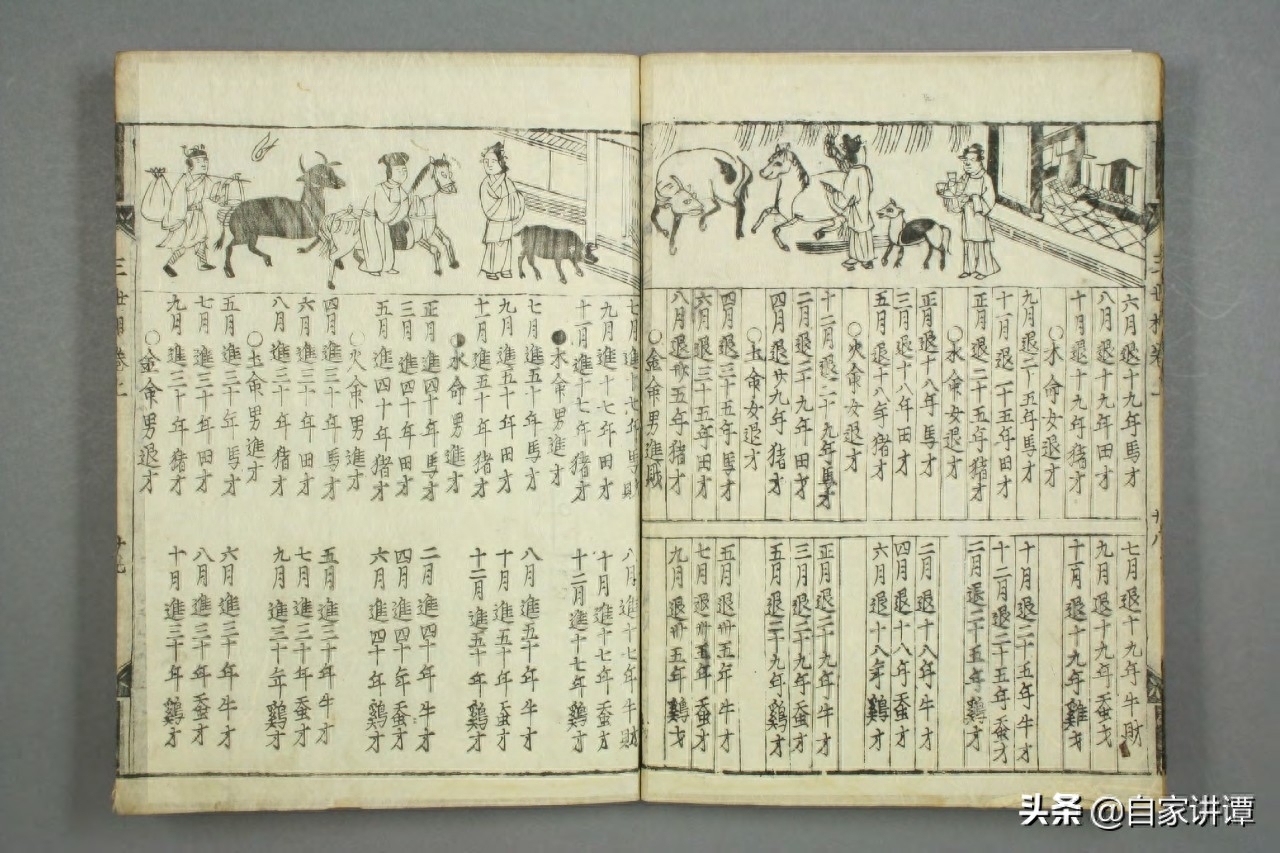 六月退十九年馬才
八月退十九年田才
十月退十九年猪才
○木命女退才
九月退二十五年馬才
十一月退二十五年田才
正月退二十五年猪才
○水命女退才
正月退十八年馬才
三月退十八年田才
五月退十八年猪才
○火命女退才
十二月退二十九年馬才
二月退二十九年田才
四月退廿九年猪才
○土命女退才
四月退三十五年馬才
六月退三十五年田才
八月退卅五年猪才
○金命男進財
七月退十九年牛財
九月退十九年蚕才
十一月退十九年雞才
十月退二十五年牛才
十二月退二十五年蚕才
二月退二十五年鷄才
二月退十八年牛才
四月退十八年蚕才
六月退十八年鷄才
正月退二十九年牛才
三月退二十九年蚕才
五月退二十九年鷄才
五月退卅五年牛才
七月退卅五年蚕才
九月退卅五年鷄才
七月進十七年馬財
九月進十七年田才
十一月進十七年猪才
●木命男進才
七月進五十年馬才
九月進五十年田才
十一月進五十年猪才
○水命男進才
正月進四十年馬才
三月進四十年田才
五月進四十年猪才
○火命男進才
四月進三十年馬才
六月進三十年田才
八月進三十年猪才
○土命男進才
五月進三十年馬才
七月進三十年田才
九月進三十年猪才
○金命男退才
八月進十七年牛財
十月進十七年蚕才
十二月進十七年鷄才
八月進五十年牛才
十月進五十年蚕才
十二月進五十年鷄才
二月進四十年牛才
四月進四十年蚕才
六月進四十年鷄才
五月進三十年牛才
七月進三十年蚕才
九月進三十年鷄才
六月進三十年牛才
八月進三十年蚕才
十月進三十年鷄才
头条 @自家讲谭